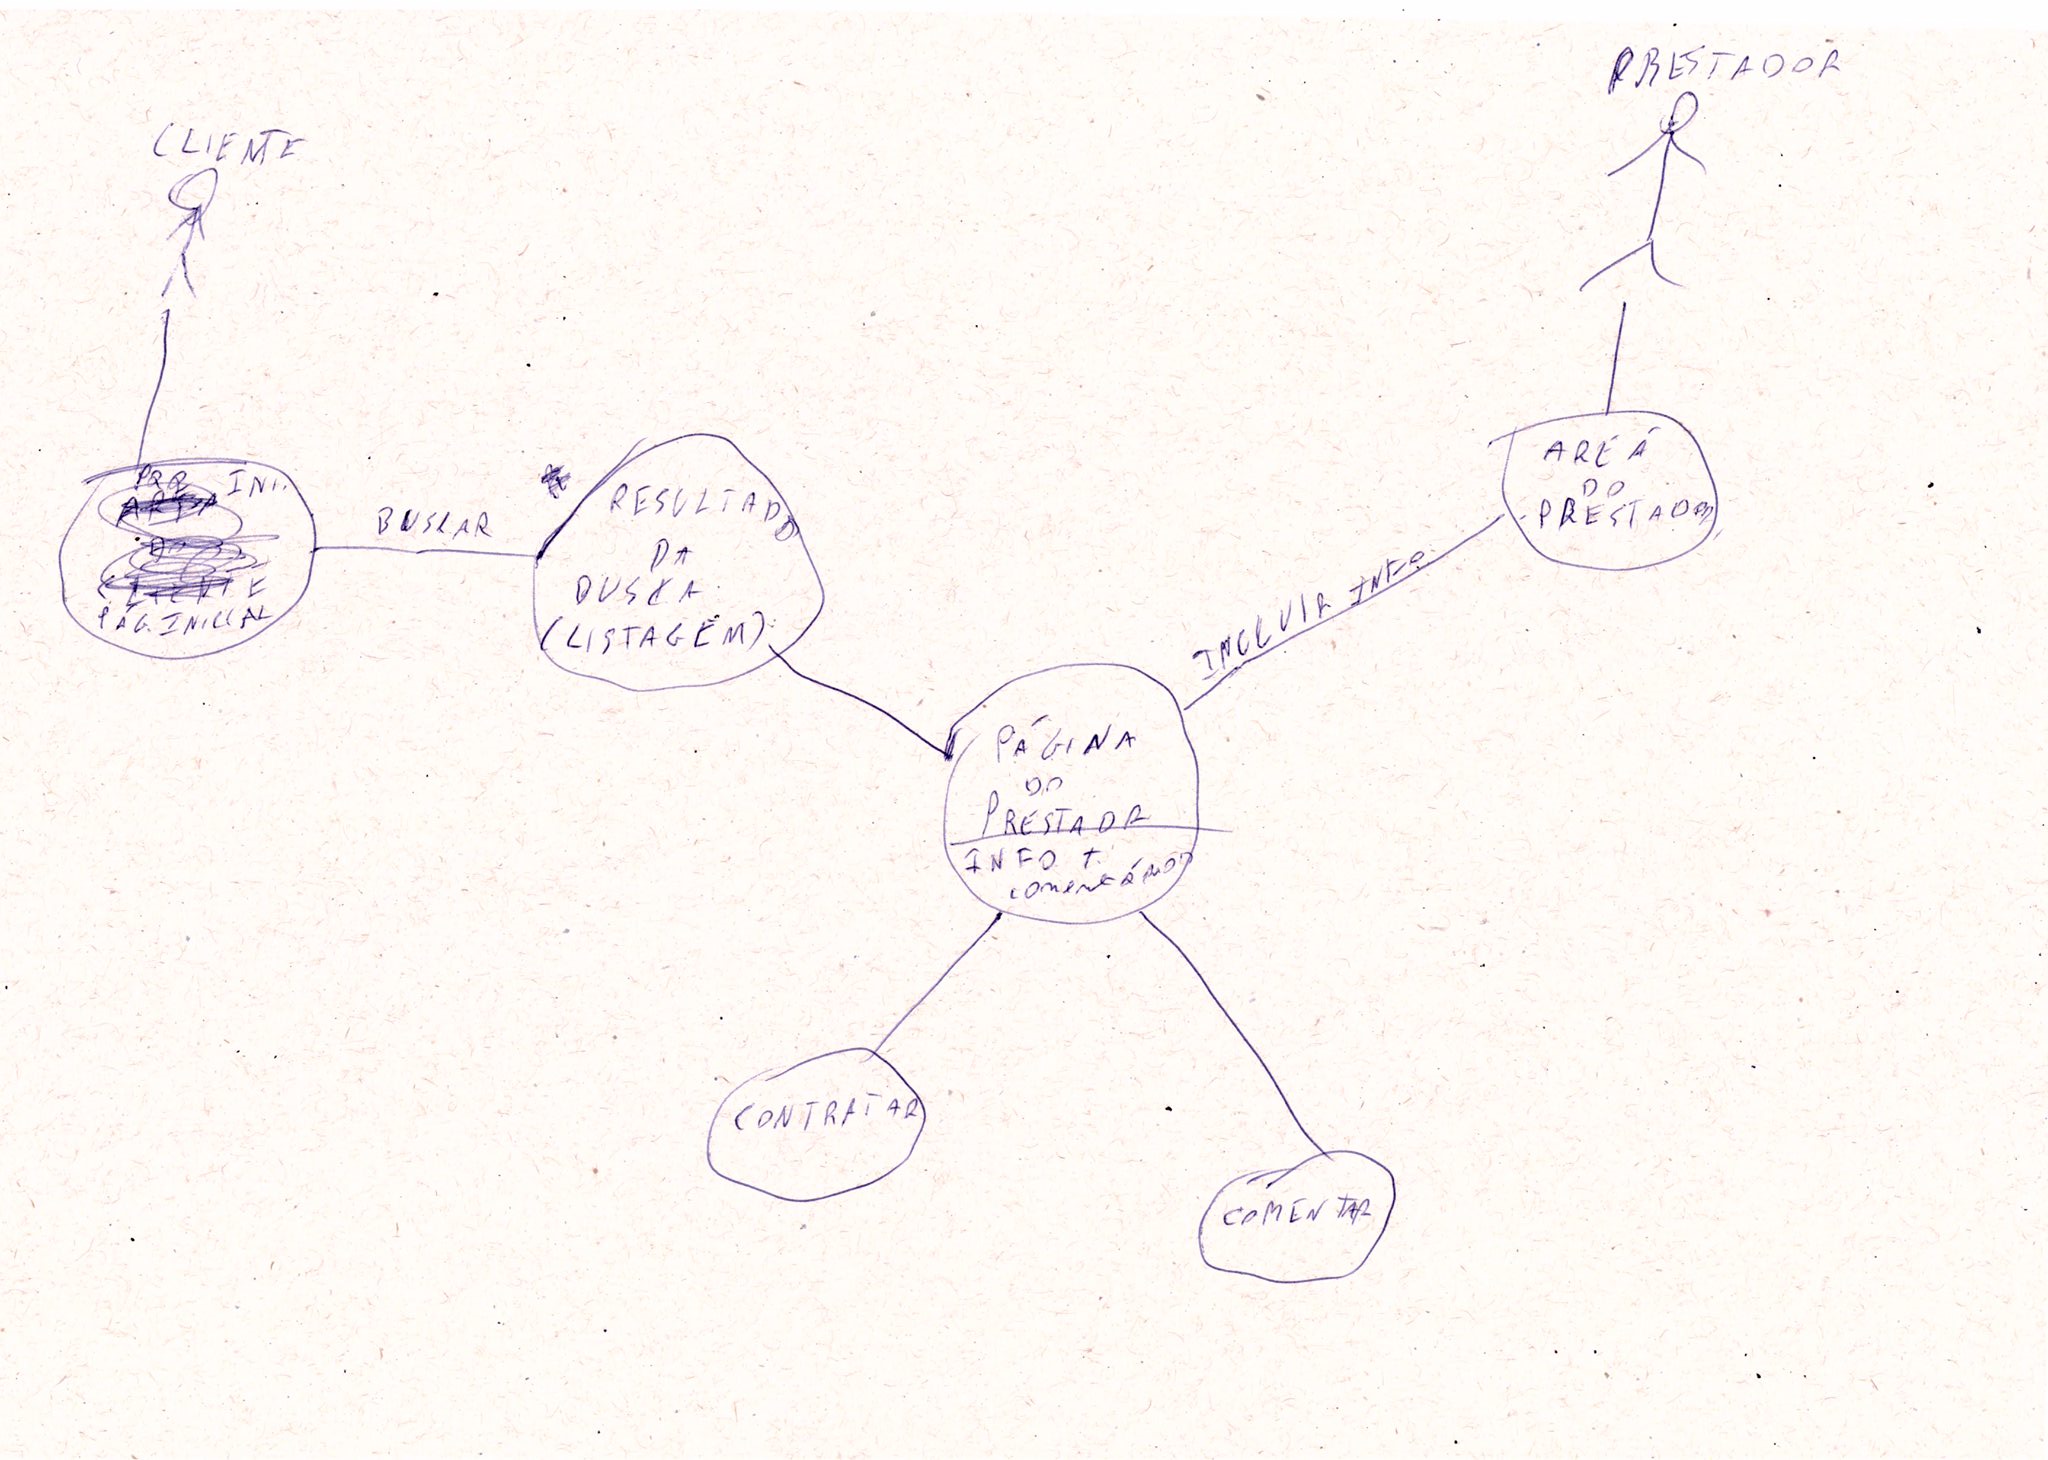 PRESTADOR
CLIENTE
INI.
PÁG. INICIAL
BUSCAR
RESULTADO
DA
BUSCA
(LISTAGEM)
AREÁ
DO
PRESTADOR
INCLUIR INFO
PÁGINA
DO
PRESTADOR
INFO +
COMENTÁRIOS
CONTRATAR
COMENTAR